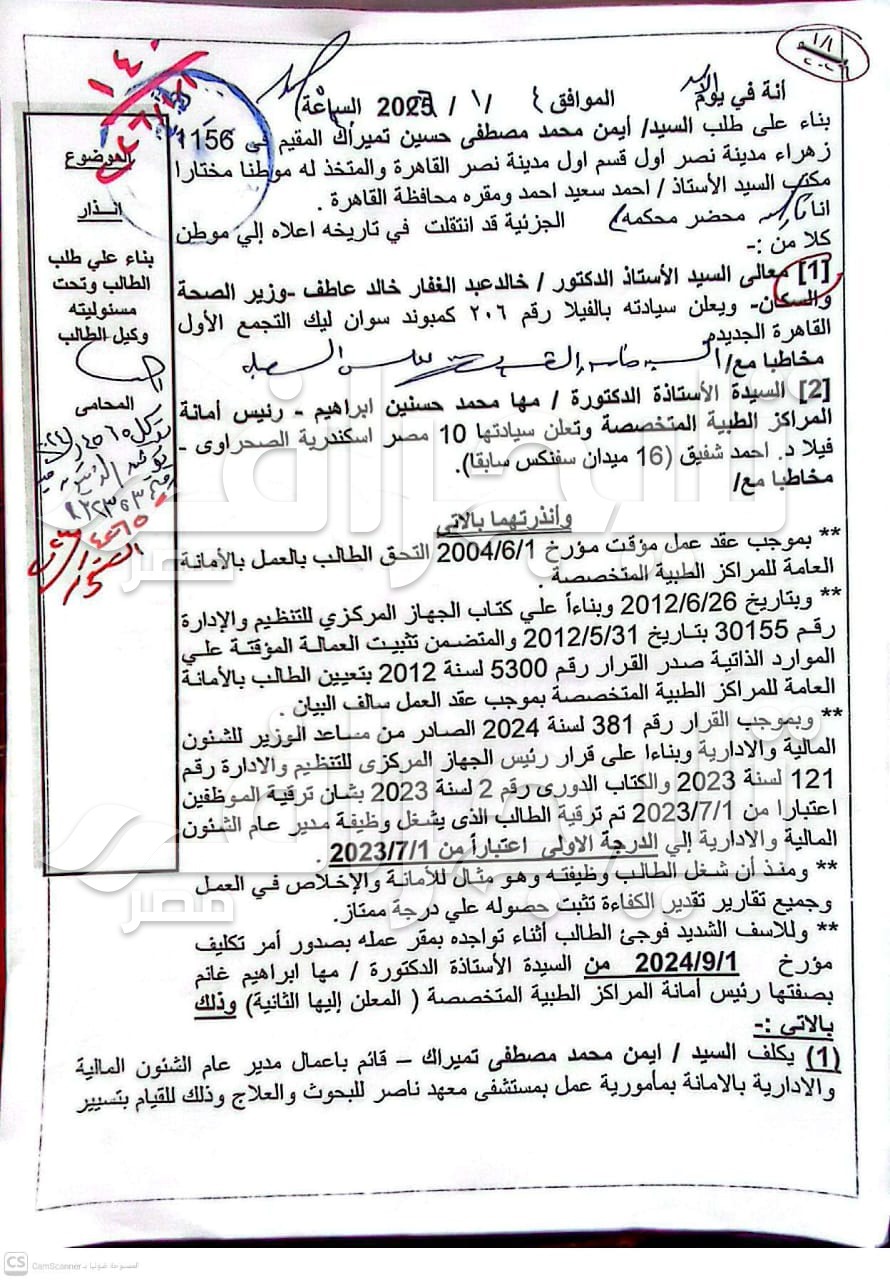 ١/٨
١٤٠
انة في يوم الموافق ٤ / ١ / 2025 الساعة
بناء على طلب السيد/ ايمن محمد مصطفى حسين تميراك المقيم في 1156
زهراء مدينة نصر اول قسم اول مدينة نصر القاهرة والمتخذ له موطنا مختارا
مكتب السيد الأستاذ / احمد سعيد احمد ومقره محافظة القاهرة .
انا محضر محكمة الجزئية قد انتقلت في تاريخه اعلاه إلي موطن
كلا من :-
[1] معالى السيد الأستاذ الدكتور / خالدعبد الغفار خالد عاطف -وزير الصحة
والسكان- ويعلن سيادته بالفيلا رقم ٢٠٦ كمبوند سوان ليك التجمع الأول
القاهرة الجديدة
مخاطبا مع/
[2] السيدة الأستاذة الدكتورة / مها محمد حسنين ابراهيم - رئيس أمانة
المراكز الطبية المتخصصة وتعلن سيادتها 10 مصر اسكندرية الصحراوى -
فيلا د. احمد شفيق (16 ميدان سفنكس سابقا).
مخاطبا مع/
وأنذرتهما بالاتي
** بموجب عقد عمل مؤقت مؤرخ 2004/6/1 التحق الطالب بالعمل بالأمانة
العامة للمراكز الطبية المتخصصة .
** وبتاريخ 2012/6/26 وبناءاً علي كتاب الجهاز المركزي للتنظيم والإدارة
رقم 30155 بتاريخ 2012/5/31 والمتضمن تثبيت العمالة المؤقتة علي
الموارد الذاتية صدر القرار رقم 5300 لسنة 2012 بتعيين الطالب بالأمانة
العامة للمراكز الطبية المتخصصة بموجب عقد العمل سالف البيان .
** وبموجب القرار رقم 381 لسنة 2024 الصادر من مساعد الوزير للشئون
المالية والادارية وبناءا على قرار رئيس الجهاز المركزى للتنظيم والادارة رقم
121 لسنة 2023 والكتاب الدورى رقم 2 لسنة 2023 بشان ترقية الموظفين
اعتبارا من 2023/7/1 تم ترقية الطالب الذى يشغل وظيفة مدير عام الشئون
المالية والادارية إلي الدرجة الاولى اعتباراً من 2023/7/1 .
** ومنذ أن شغل الطالب وظيفته وهو مثال للأمانة والإخلاص في العمل
وجميع تقارير تقدير الكفاءة تثبت حصوله علي درجة ممتاز.
** وللاسف الشديد فوجئ الطالب أثناء تواجده بمقر عمله بصدور أمر تكليف
مؤرخ 2024/9/1 من السيدة الأستاذة الدكتورة / مها ابراهيم غانم
بصفتها رئيس أمانة المراكز الطبية المتخصصة ( المعلن إليها الثانية) وذلك
بالاتي :-
(1) يكلف السيد / ايمن محمد مصطفى تميراك – قائم باعمال مدير عام الشئون المالية
والادارية بالامانة بمأمورية عمل بمستشفى معهد ناصر للبحوث والعلاج وذلك للقيام بتسيير
الموضوع
انـذار
بناء علي طلب
الطالب وتحت
مسئوليته
وكيل الطالب
المحامى
تليجراف
مصر
تليجراف
مصر
CS CamScanner الممسوحة ضوئيا بـ